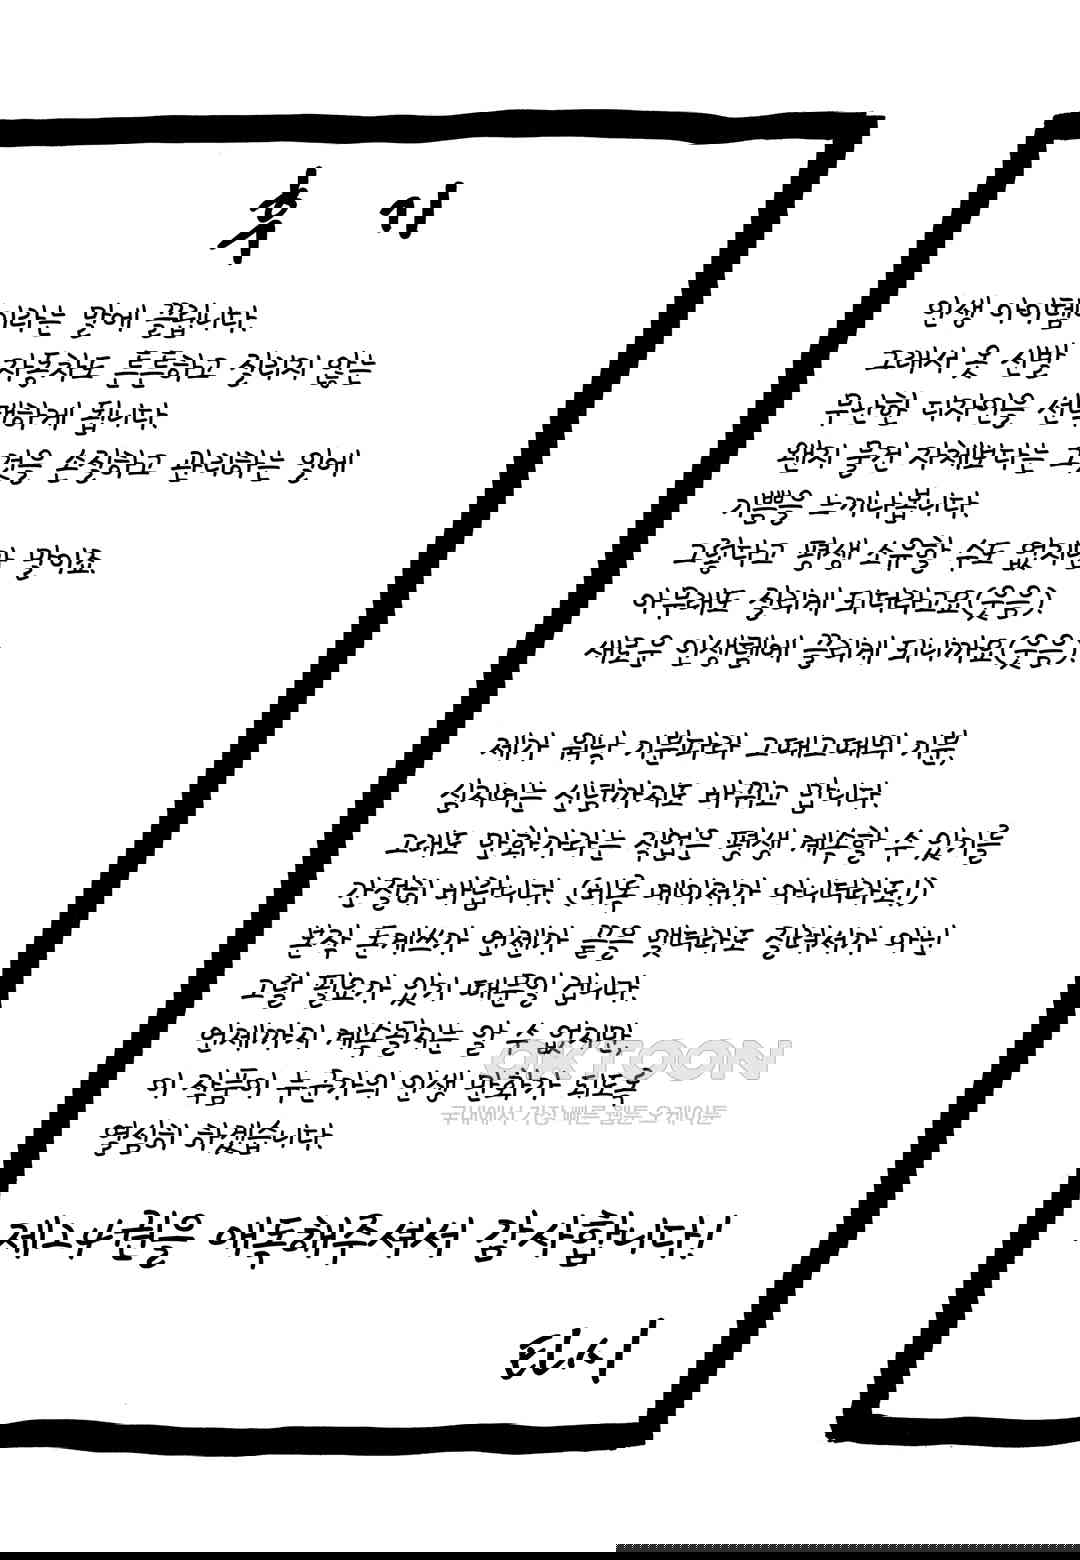 후기
이라는 말에 끌립니다.
자동차도 튼튼하고 질리지 않는
택하게 됩니다.
것을 손질하고 관리하는 일에
만 말이죠.
인생 아이템
그래서 옷 신발
무난한 디자인을 선택
왠지 물건 자체보다는 그것
기쁨을 느끼나봅니다.
그렇다고 평생 소유할 수도 없지만
아무래도 질리게 되더라고요(웃음).
새로운 인생템에 끌리게 되니까요(웃음).
제가 워낙 기분파라 그때그때의 기분,
심지어는 신념까지도 바뀌고 맙니다.
그래도 만화가라는 직업은 평생 계속할 수 있기를
간절히 바랍니다. (비록 메이저가 아니더라도!)
본작 돈케쓰가 언젠가 끝을 맺더라도 질려서가 아닌
그럴 필요가 있기 때문일 겁니다.
언제까지 계속될지는 알 수 없지만,
이 작품이 누군가의 인생 만화가 되도록
열심히 하겠습니다.
OKTOON
국내에서 가장 빠른 웹툰 오케이툰
제24권을 애독해주셔서 감사합니다!